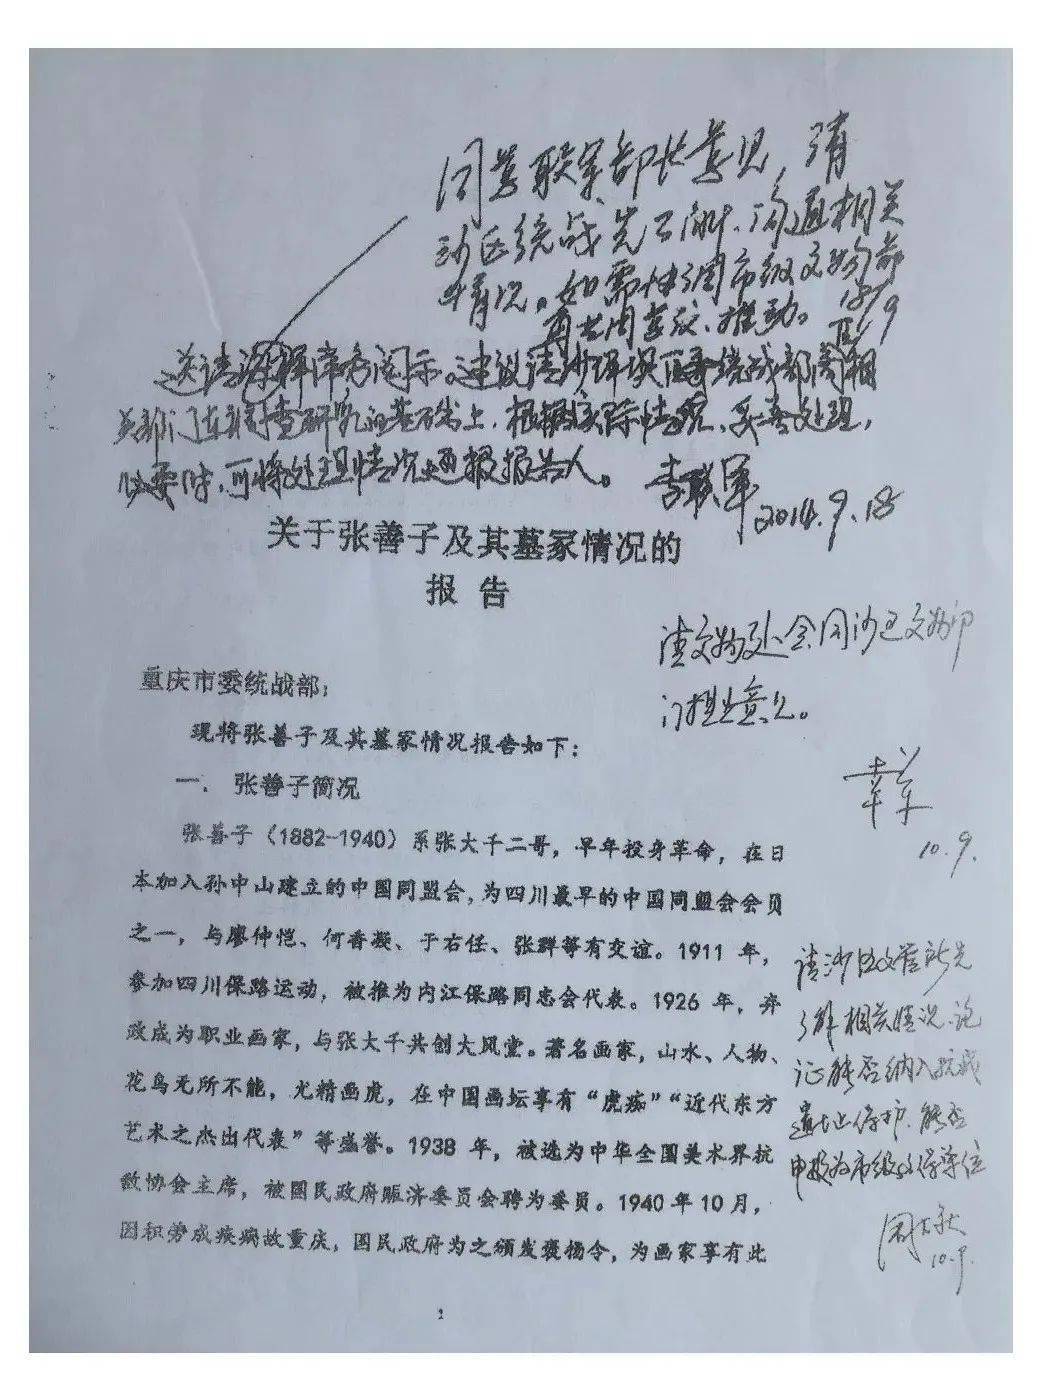 同意联军部长意见，请
沙区统战先了解、沟通相关
情况。如需协调市级文物部
再共同会议、推动。
18/9
送请海辉常委阅示。建议请沙坪坝区委统战部商相
关部门在调查研究的基础上，根据实际情况，妥善处理，
必要时，可将处理情况通报报告人。
李联军
2014.9.18
关于张善子及其墓冢情况的
报告
请文物处会同沙区文物部
门提出意见。
幸军
10.9.
重庆市委统战部：
现将张善子及其墓冢情况报告如下：
一、张善子简况
张善子（1882-1940）系张大千二哥，早年投身革命，在日
本加入孙中山建立的中国同盟会，为四川最早的中国同盟会会员
之一，与廖仲恺、何香凝、于右任、张群等有交谊。1911 年，
参加四川保路运动，被推为内江保路同志会代表。1926 年，弃
政成为职业画家，与张大千共创大风堂。著名画家，山水、人物、
花鸟无所不能，尤精画虎，在中国画坛享有“虎痴”“近代东方
艺术之杰出代表”等盛誉。1938 年，被选为中华全国美术界抗
敌协会主席，被国民政府赈济委员会聘为委员。1940 年 10 月，
因积劳成疾病故重庆，国民政府为之颁发褒扬令，为画家享有此
请沙区文管所先
了解相关情况、论
证能否纳入抗战
遗址保护、能否
申报为市级文保单位
周大秋
10.9.
2